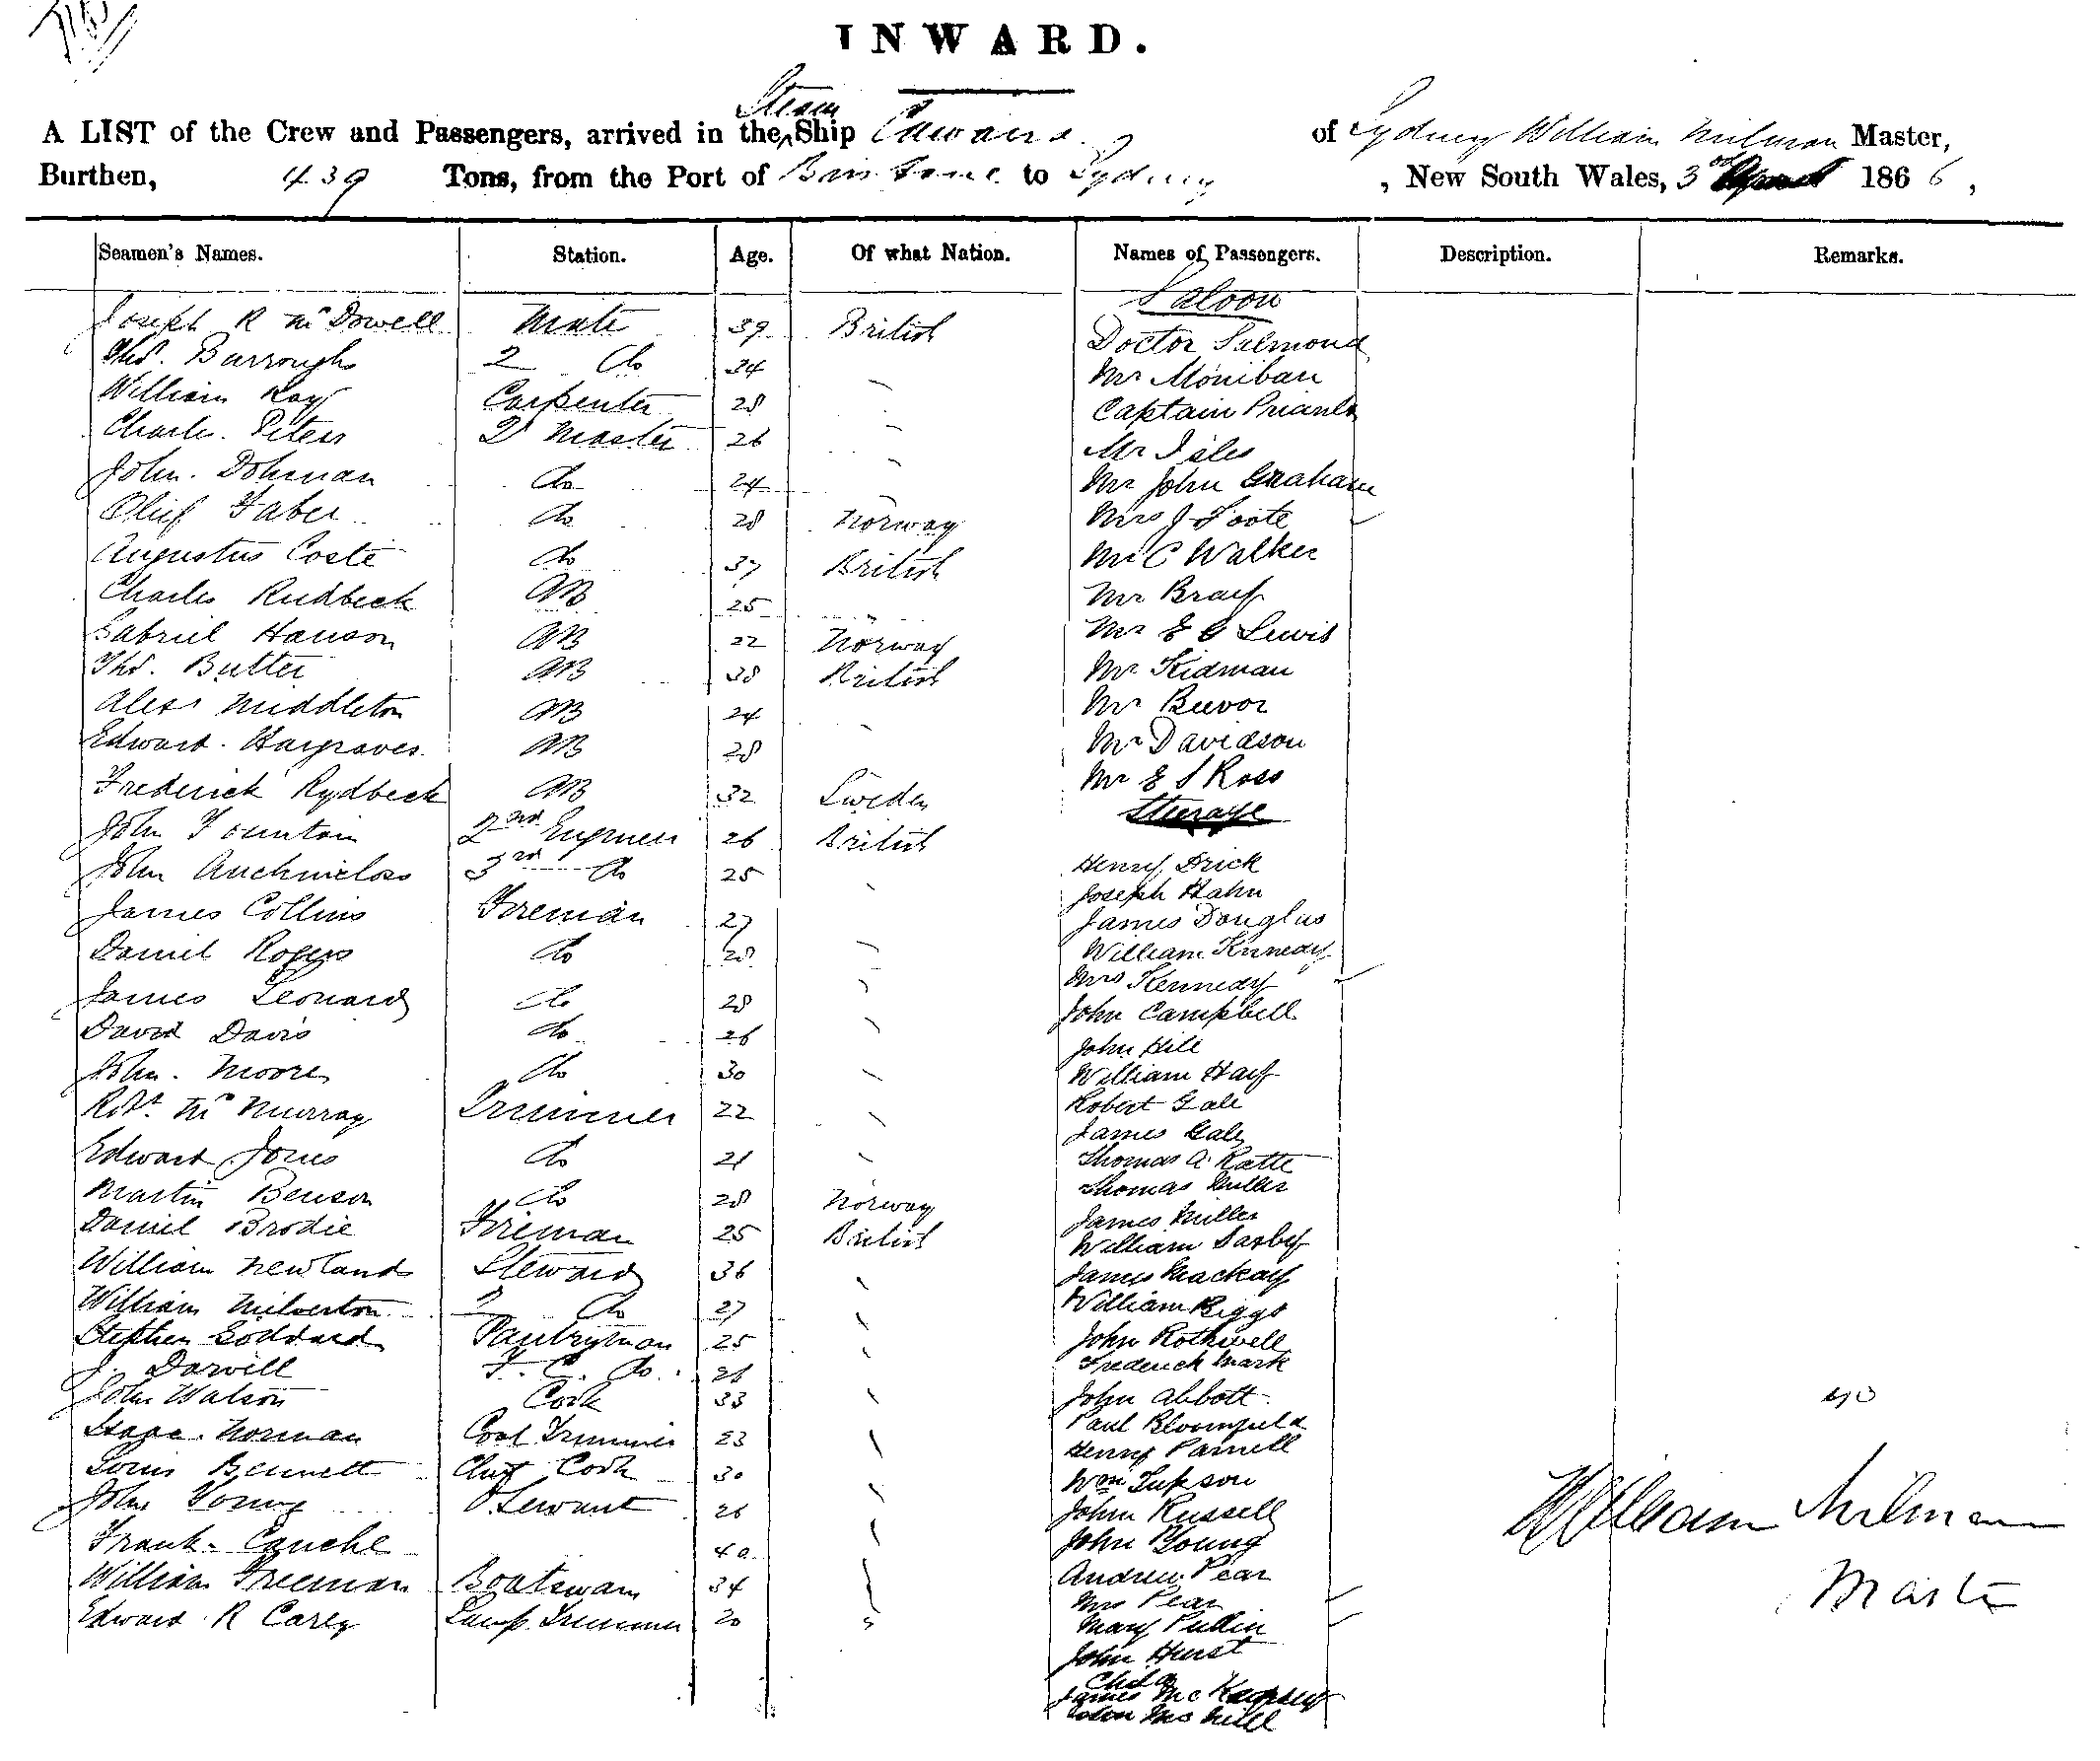 INWARD.
Steam
A LIST of the Crew and Passengers, arrived in the ^ Ship of Sydney William Milman Master,
Burthen, 439 Tons, from the Port of Brisbane to Sydney, New South Wales, 3rd April 1866,
Seamen's Names. Station. Age. Of what Nation. Names of Passengers. Description. Remarks.
Saloon
Joseph R McDowell Mate 39 British Doctor Salmond
Thos. Burroughs 2 Do 34 Mr
William Kay Carpenter 28 Captain
Charles Peters Qr Master 26 Mr Isles
John. Dohman do 24 Mr John Graham
Oluf Faber do 28 Norway Mrs J Foote
Augustus Coste do 37 British Mr C Walker
Charles Rudbeck AB 25 Mr Bray
Gabriel Hanson AB 22 Norway Mr E G Lewis
Thos. Butter AB 38 British Mr Kidman
Alexr Middleton AB 24 Mr Beevor
Edward. Hargraves AB 28 Mr Davidson
Frederick Rydbeck AB 32 Sweden Mr E S Ross
Steerage
John Fountain 2nd Engineer 26 British
John Auchincloss 3rd do 25 Henry Brick
Joseph Hahn
James Collins Fireman 27 James Douglas
Daniel Rogers do 28 William Kennedy
Mrs Kennedy
James Leonard do 28 John Campbell
David Davis do 26 John Hill
John. Moore do 30 William Hay
Robt. McMurray Trimmer 22 Robert Gale
James Gale
Edward Jones do 21 Thomas A. Ratte
Martin Benson do 28 Norway Thomas Miller
Daniel Brodie Fireman 25 British James Miller
William Saxby
William Newlands Steward 36 James Mackay
William Milverton 2 do 27 William Riggs
Stephen Goddard Pantryman 25 John Rothwell
J. Darvill F. C. do. 26 Frederick Mark
John Watson Cook 33 John Abbott
Isaac. Norman Coal Trimmer 23 Paul Bloomfield
Henry Parnell
Louis Bennett Chief Cook 30 Wm
John Young Servant 26 John Russell
Frank. Cauchl 40 John Young
William Freeman Boatswain 34 Andrew Pear
Mrs Pear
Edward. R Carey Lamp. Trimmer 20 Mary Pullin
John Hurst
Child
James Mc
John McNeill
William Milman
Master